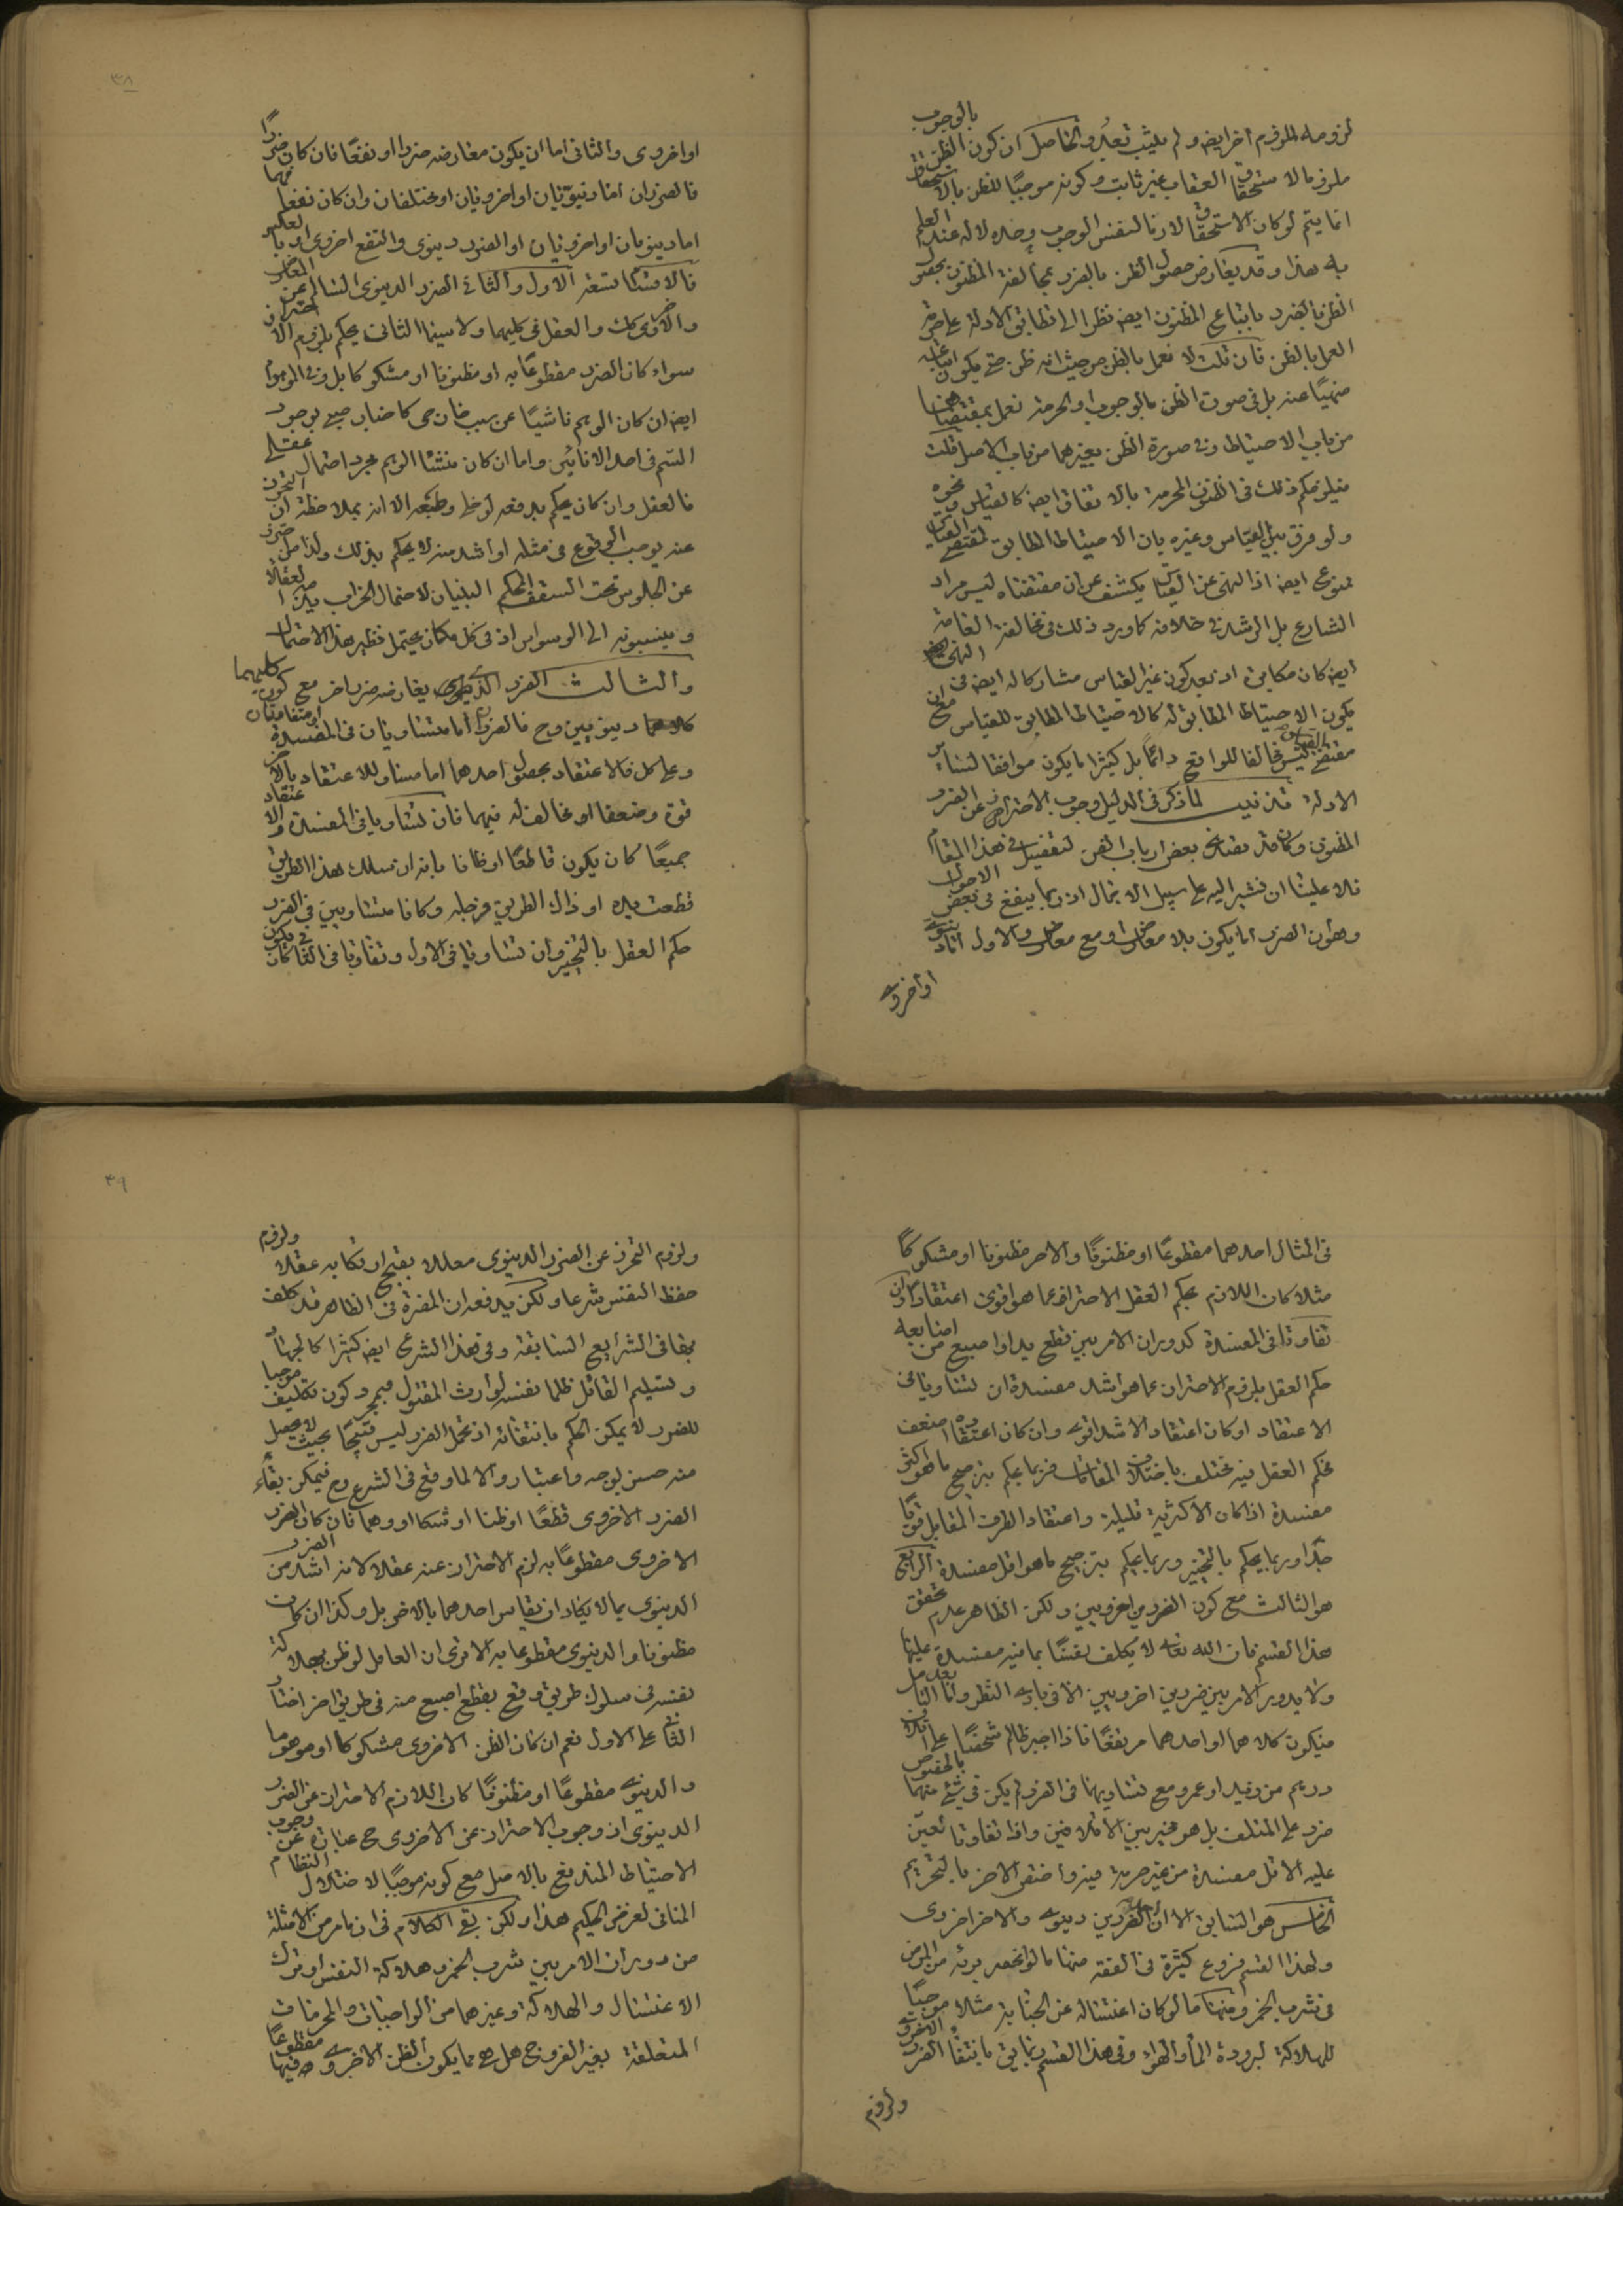 لزومه للزوم اخر ايضه ولم يثبت بعد والحاصل ان كون الظن بالوجوب
ملزوما لاستحقاق العقاب غير ثابت وكونه موجبًا للظن بالاستحقاق
انما يتم لو كان الاستحقاق لازما لنفس الوجوب وحده لا له عند العلم
به هذا وقد يعارض حصول الظن بالضرر بمخالفة المظنون بحصول
الظن بالضرر باتباع المظنون ايضه نظرا الى تطابق الادلة على حرمة
العمل بالظن فان قلت لا نعمل بالظن من حيث انه ظن حتى يكون اتباعه
منهيًا عنه بل في صورت الظن بالوجوب او الحرمة نعمل بمقتضاهما
من باب الاحتياط وفي صورة الظن بغيرهما من باب الاصل قلت
فيلزمكم ذلك في الظنون المحرمة بالاتفاق ايضه كالقياس ونحوه
ولو فرق بين القياس وغيره بان الاحتياط المطابق لمقتضى القياس
ممنوع ايضه اذ النهى عن القياس يكشف عن ان مقتضاه ليس مراد
الشارع بل الرشد في خلافه كما ورد ذلك في مخالفة العامة
ايضه كان مكابرة اذ بعد كون غير القياس مشاركا له ايضه في النهى
يكون الاحتياط المطابق له كالاحتياط المطابق للقياس مع ان
مقتضى القياس ليس مخالفا للواقع دائمًا بل كثيرا ما يكون موافقا لسائر
الادلة تذنيب لما ذكر في الدليل وجوب الاحتراز عن الضرر
المظنون وكان قد بعض ارباب الفن لتفصيل في هذا المقام
فلا علينا ان نشير اليه على سبيل الاجمال اذ ربما ينفع في بعض الاحوال
وهو ان الضرر اما يكون بلا معارض او مع معارض والاول اما دنيوي
او اخروي
٣٨
او اخروى والثانى اما ان يكون معارضه ضررا او نفعًا فان كان ضررًا
فالضرران اما دنيويان او اخرويان او مختلفان وان كان نفعا فهما
اما دنيويان او اخرويان او الضرر دينوى والنفع اخروى او بالعكس
فالاقسام تسعة الاول والثاني الضرر الدينوى السالم عن المعارض
والاخروى كك والعقل في كليهما ولا سيما الثانى يحكم بلزوم الاحتراز
سواء كان الضرر مقطوعًا به او مظنونا او مشكوكا بل وفي الموهوم
ايضه ان كان الوهم ناشيًا عن سبب خارجى كاخبار صبى بوجود
السم في احد الانائين واما ان كان منشئا الوهم مجرد احتمال عقلى
فالعقل وان كان يحكم بدفعه لو خلى وطبعه الا انه بملاحظة ان التحرز
عنه يوجب الوقوع في مثله او اشد منه لا يحكم بذلك ولذا من حترز
عن الجلوس تحت السقف المحكم البنيان لاحتمال الخراب العقلاء
وينسبونه الى الوسواس اذ في كل مكان يحتمل نظير هذا الاحتمال
والثالث الضرر الدنيوى يعارضه ضرر اخر مع كون كليهما
دينويين وح فالضرران اما متساويان في المفسدة او متفاوتان
وعلى كل فالاعتقاد بحصول احدهما اما مساو للاعتقاد بالاخر
قوة وضعفا او مخالف له فيهما فان تساويا في المفسدة والاعتقاد
جميعًا كان يكون قاطعًا او ظانا بانه ان سلك هذا الطريق
قطعت يده او ذاك الطريق فرجله وكانا متساويين في الضرر
حكم العقل بالتخيير وان تساويا في الاول وتفاوتا في الثانى كان يكون
في المثال احدهما مقطوعًا او مظنونًا والاخر مظنونا او مشكوكًا
مثلا كان اللازم بحكم العقل الاحتراز عما هو اقوى اعتقادا وان
تفاوتا في المفسدة كدوران الامر بين قطع يد او اصبع من اصابعه
حكم العقل بلزوم الاحتراز عما هو اشد مفسدة ان تساويا في
الاعتقاد او كان اعتقاد الاشد اقوى وان كان اعتقاده اضعف
فحكم العقل فيه يختلف باختلاف المقامات فربما يحكم بترجيح ما هو اكثر
مفسدة اذا كان الاكثرية قليلة واعتقاد الطرف المقابل قويًا
جدًا وربما يحكم بالتخيير وربما يحكم بترجيح ما هو اقل مفسدة الرابع
هو الثالث مع كون الضررين اخرويين ولكن الظاهر عدم تحقق
هذا القسم فان الله تعالى لا يكلف نفسًا بما فيه مفسدة عليها
ولا يدور الامر بين ضررين اخرويين الا في بادى النظر واما بعد التامل
فيكون كلاهما او احدهما مرتفعًا فاذا اجبر ظالم شخصًا على اتلاف
درهم من زيد او عمرو مع تساويهما في الضرر لم يكن في شئ منهما بالخصوص
ضرر على المتلف بل هو مخير بين الاتلافين واذا تفاوتا تعين
عليه الاقل مفسدة من غير حرمة فيه واختص الاخر بالتحريم
الخامس هو السابق الا ان احد الضررين دينوى والاخر اخروى
ولهذا القسم فروع كثيرة في الفقه منها ما لو انحصر برئه من المرض
في شرب الخمر ومنها ما لو كان اغتساله عن الجنابة مثلا موجبًا
للهلاكة لبرودة الماء او الهواء وفي هذا القسم ربما بانتفاء الضرر الاخروى
ولزوم
٣٩
ولزوم التحرز عن الضرر الدينوى معللا بقبح ارتكابه عقلا ولزوم
حفظ النفس شرعا ولكن يدفعه ان المضرة في الظاهر قد كلف
بها في الشرايع السابقة وفي هذا الشرع ايضه كثيرا كالجهاد
وتسليم القاتل ظلما نفسه لوارث المقتول فبمجرد كون تكليف موجبا
للضرر لا يمكن الحكم بانتفائه اذ تحمل الضرر ليس قبيحًا بحيث لا يحصل
منه حسن بوجه واعتبار والا لما وقع في الشرع وح فيمكن بقاء
الضرر الاخروى قطعًا او ظنا او شكا او وهما فان كان الضرر
الاخروى مقطوعًا به لزم الاحتراز عنه عقلا لانه اشد من الضرر
الدينوى بما لا يكاد ان يقاس احدهما بالاخر بل وكذا ان كان
مظنونا والدينوى مقطوعا به الا ترى ان العاقل لو ظن بهلاكة
نفسه في سلوك طريق وقطع بقطع اصبع منه في طريق اخر اختار
الثانى على الاول نعم ان كان الظن الاخروى مشكوكا او موهوما
والدينوى مقطوعًا او مظنونًا كان اللازم الاحتراز عن الضرر
الدينوى اذ وجوب الاحتراز عن الاخروى ح عبارة عن وجوب
الاحتياط المندفع بالاصل مع كونه موجبًا لاختلال النظام
المنافى لغرض الحكيم هذا ولكن بقى الكلام في ان ما مر من الامثلة
من دوران الامر بين شرب الخمر وهلاكة النفس او ترك
الاغتسال والهلاكة وغيرهما من الواجبات والمحرمات
المتعلقة بغير الفروج هل هى مما يكون الظن الاخروى فيها مقطوعًا